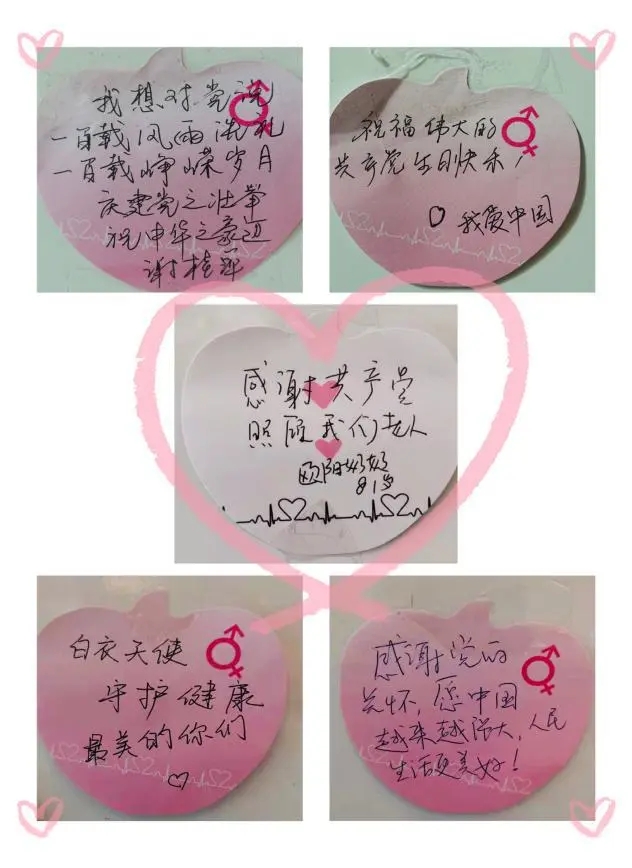 我想对党说
一百载风雨洗礼
一百载峥嵘岁月
庆建党之壮举
祝中华之豪迈
谢桂萍
祝福伟大的
共产党生日快乐!
我爱中国
感谢共产党
照顾我们老人
欧阳奶奶
81岁
白衣天使
守护健康
最美的你们
感谢党的
关怀,愿中国
越来越强大,人民
生活更美好!